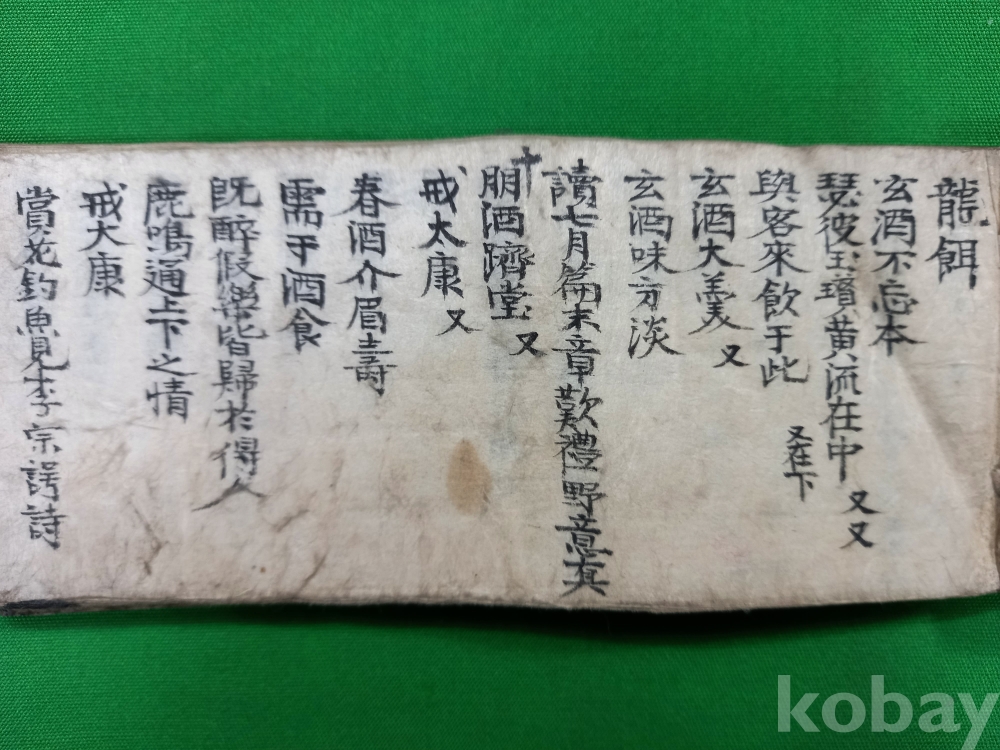 龍餌
玄酒不忘本
瑟彼玉瓚黃流在中 又又
與客來飮于此 又在下
玄酒大羹 又
玄酒味方淡
讀七月篇末章歎禮野意眞
朋酒躋堂 又
戒太康 又
春酒介眉壽
需于酒食
旣醉假樂皆歸於得人
鹿鳴通上下之情
戒大康
賞花釣魚見李宗諤詩
kobay